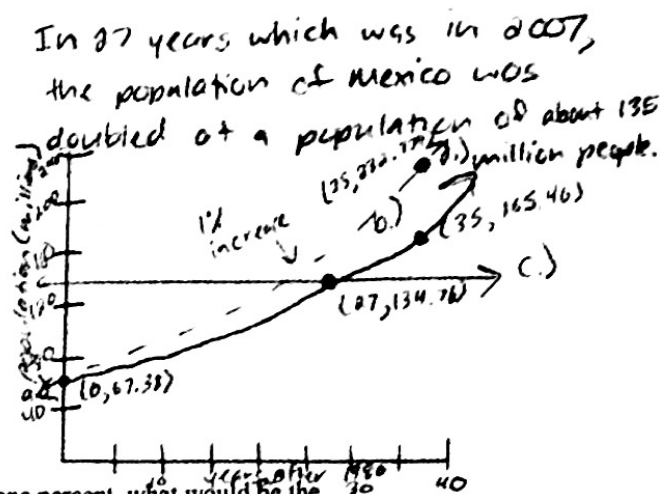 In 27 years which was in 2007,
the population of Mexico was
doubled at a population of about 135
million people.
1%
increase
b.)
(35, 165.46)
c.)
(27, 134.76)
(0, 67.38)
Population (millions)
200
120
80
40
10
30
40
years after 1980
one percent, what would be the